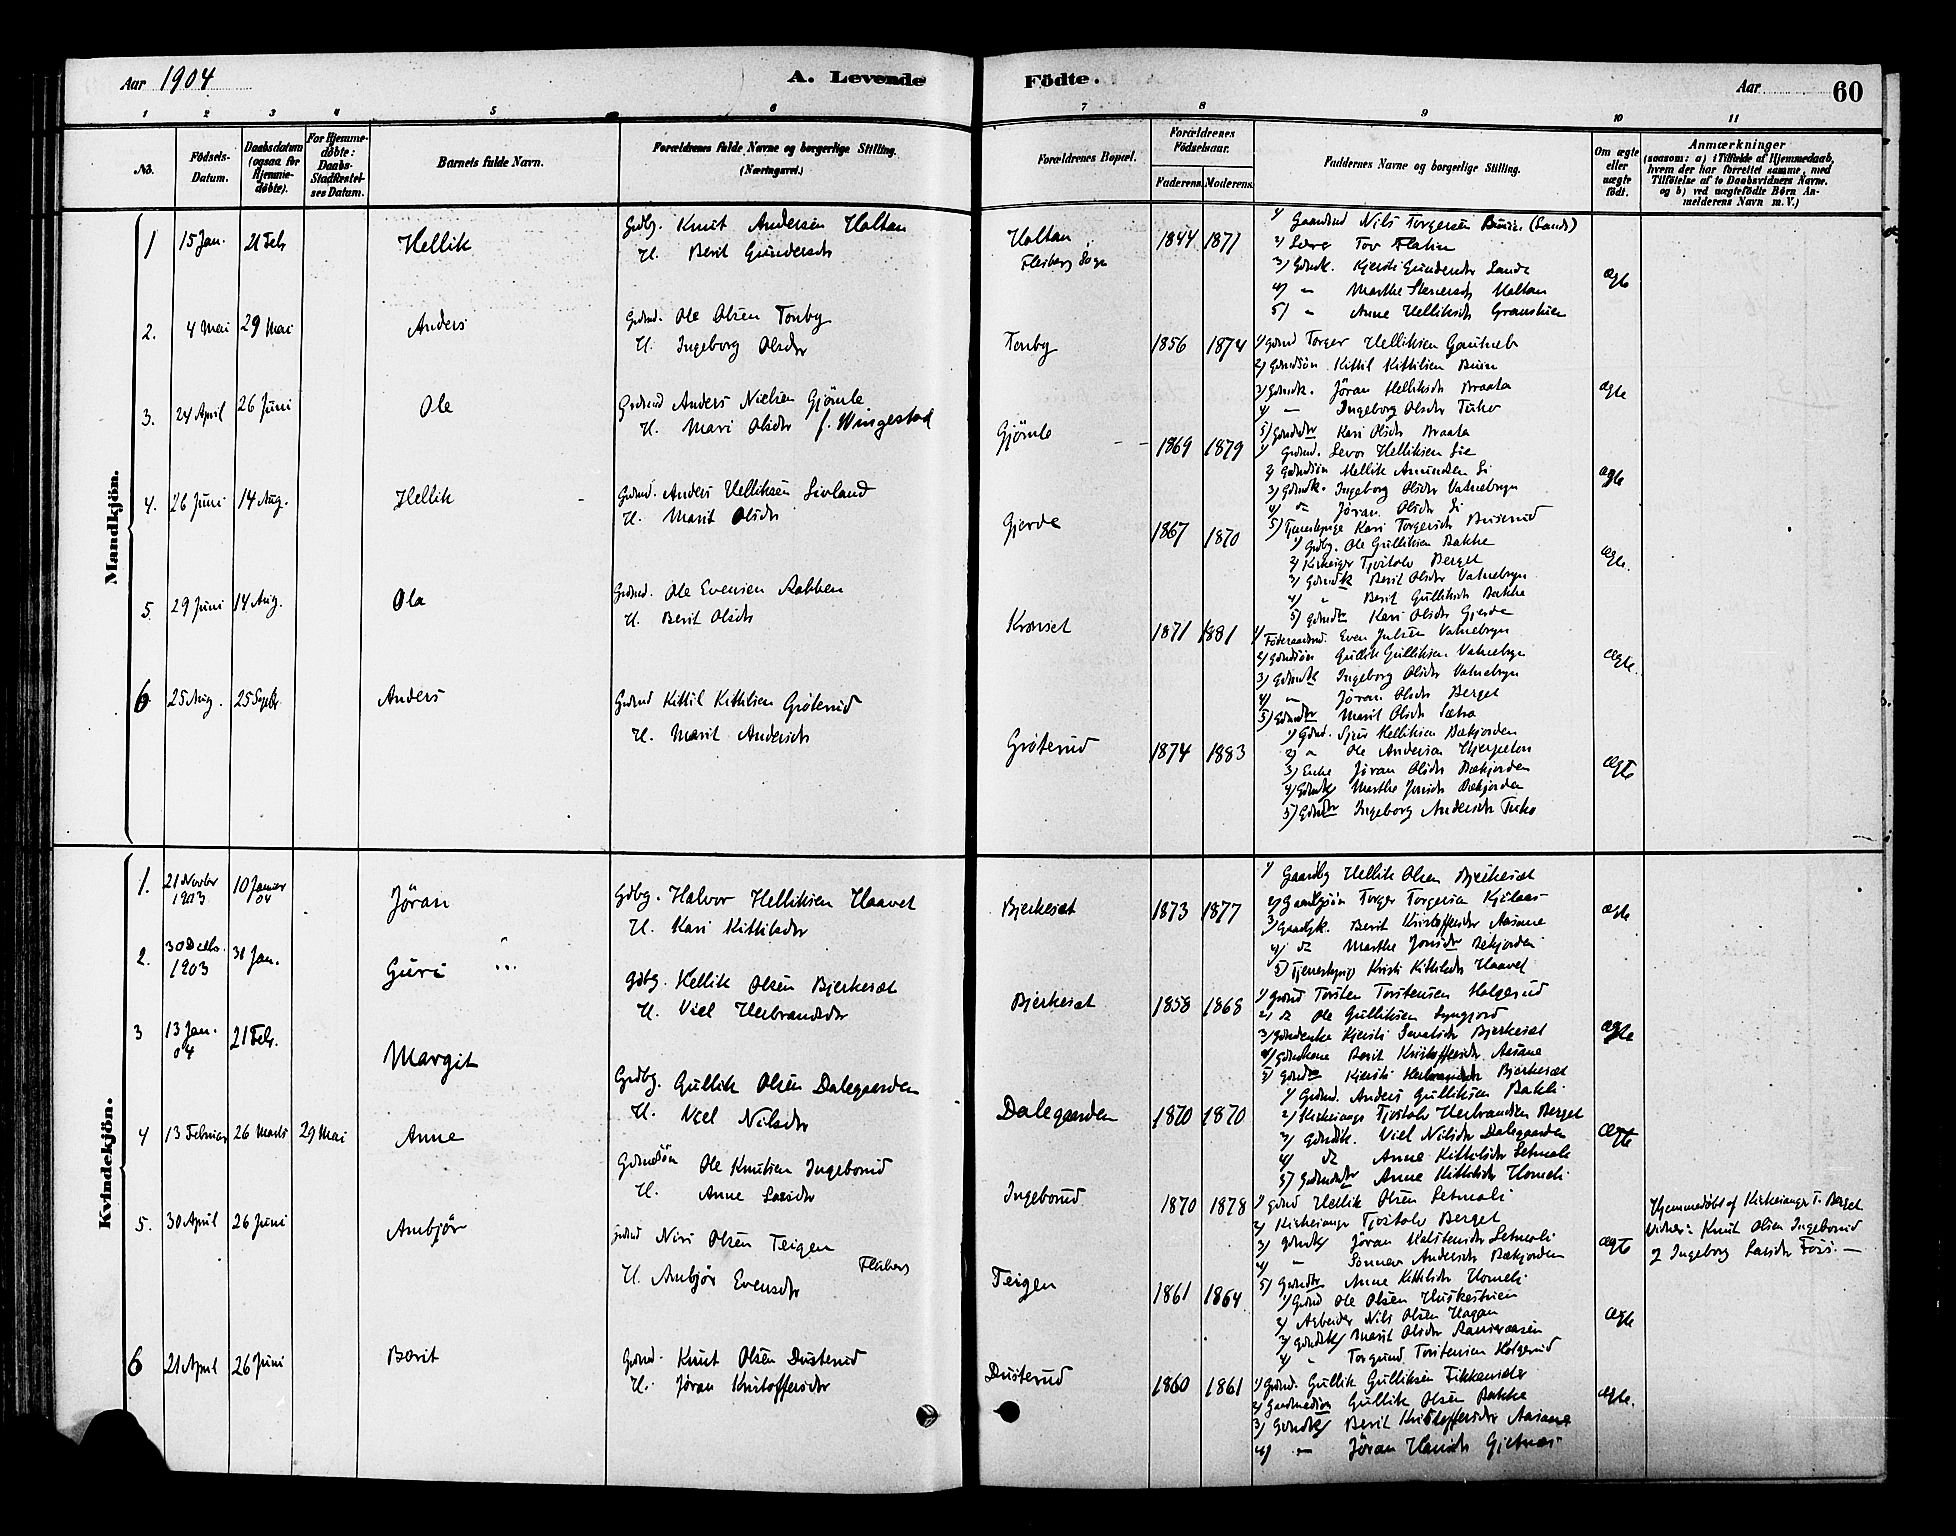 Aar 1904
A. Levende Födte.
Aar 60
1 2 3 4 5 6 7 8 9 10 11
No.
Födsels-Datum.
Daabsdatum (ogsaa for Hjemme-döbte).
For Hjemme-döbte: Daabs-Stadfæstel-ses Datum.
Barnets fulde Navn.
Forældrenes fulde Navne og borgerlige Stilling. (Næringsvei.)
Forældrenes Bopæl.
Forældrenes Födselsaar.
Faderens. Moderens.
Faddernes Navne og borgerlige Stilling.
Om ægte eller uægte födt.
Anmærkninger
(saasom: a) i Tilfælde af Hjemmedaab,
hvem der har forrettet samme, med
Tilföielse af to Daabsvidners Navne.
og b) ved uægtefödte Börn An-
melderens Navn m. V.)
Mandkjön.
1 15 Jan. 21 Feb Hellik
Gdbg. Knut Andersen Haltan
H. Berit Gundersdr
Haltan
Flesberg Sogn
1844 1871
1) Gaardmd Nils Torgersen (Sands)
2) Lærer Tov Flatin
3) Gdmdk. Kjersti Gundersdr Sande
4) " Marthe Haltan
5) " Anne Helliksdr
ægte
2. 4 Mai 29 Mai Anders
Grdmd. Ole Olsen Tonby
H. Ingeborg Olsdr
Tonby
1856 1874
1) Gdmd Torger Helliksen
2) Gdmdsön Kittil Kittilsen
3) Gdmdk. Jöran Helliksdr Braata
4) — Ingeborg Olsdr
5) Gdmddtr Kari Olsdr Braata
ægte
3. 24 April 26 Juni Ole
Grdmd Anders Nielsen Gjömle
H. Mari Olsdr f. Wingestad
Gjömle
1869 1879
1) Grdmd. Levor Helliksen Lie
2) Gdmdsön Hellik Amundsen Li
3) Gdmdk. Ingeborg Olsdr Vatnebryn
4) do Jöran Olsdr Li
5) Tjenestepige Kari Torgersdr
ægte
4. 26 Juni 14 Aug. Hellik
Grdmd. Anders Helliksen Livland
H. Marit Olsdr
Gjerde
1867 1870
1) Grdbg. Ole Gulliksen Bakke
2) Kirkesgr Tjostolv Berget
3) Gdmdk Berit Olsdr Vatnebryn
4) " Berit Gulliksdr Bakke
5) Gdmdtr Kari Olsdr Gjerde
ægte.
5 29 Juni 14 Aug. Ola
Grdmd. Ole Evensen Bakken
H. Berit Olsdr
Kronset
1871 1881
1) Föderaadsmd. Even Julsen Vatnebryn
2) Gdmdsön Gullik Gulliksen Vatnebryn
3) Gdmdk Ingeborg Olsdr Vatnebryn
4) " Jöran Olsdr Berget
5) Gdmdtr Marit Olsdr Sætra
ægte.
6 25 Aug. 25 Septbr Anders
Grdmd Kittil Kittilsen Gröterud
H. Marit Andersdr
Gröterud
1874 1883
1) Gdmd. Helliksen Bækjorden
2) " Ole Andersen
3) Enke Jöran Olsdr Bækjorden
4) Gdmdk Marthe Jonsdr Bækjorden
5) Gdmdtr Ingeborg Andersdr
ægte
Kvindekjön.
1. 21 Novbr 1903 10 Januar 04 Jöran
Gdbg. Halvor Helliksen Haavet
H. Kari Kittilsdr
Bjerkesæt
1873 1877
1) Gaardbg Hellik Olsen Bjerkesæt
2) Torger Torgersen
3) Gaardbgk. Berit Kristoffersdr Aasane
4) do Marthe Jonsdr Bekjorden
5) Tjenestepige Kristi Kittilsdr Haavet
ægte
2. 30 Decbr. 1903 31 Jan. Guri
Gdbg. Hellik Olsen Bjerkesæt
H. Viel Herbrandsdr
Bjerkesæt
1858 1868
1) Grdmd Torsten Torstensen Holgerud
2) do Ole Gulliksen
3) Gdmdenke Kjersti Bjerkesæt
4) Gdmdkone Berit Kristoffersdr. Aasane
5) Kjersti Herbrandsdr Bjerkesæt
ægte
3 13 Jan. 04 21 Feb. Margit
Grdbg. Gullik Olsen Dalegaarden
H. Viel Nilsdr
Dalegaarden
1870 1870
1) Grdmd. Anders Gulliksen Bakke
2) Kirkesanger Tjostolv Herbrandsen Berget
3) Gdmdk. Viel Nilsdr Dalegaarden
4) do Anne Kittilsdr Setmoli
5) Gdmddtr Anne Kittilsdr Homeli
ægte
4 13 Februar 26 Marts 29 Mai Anne
Gdmdsön Ole Knutsen Ingeborud
H. Anne Larsdr
Ingeborud
1870 1878
1) Gdmd Hellik Olsen Setmoli
2) Kirkesanger Tjostolv Berget
3) Gdmdk Jöran Halstensdr Setmoli
4) " Sonnev Andersdr Bækjorden
5) Gdmdtr Anne Kittilsdr Homeli
ægte
Hjemmedöbt af Kirkesanger T. Berget
Vidner: Knut Olsen Ingeborud
& Ingeborg Larsdr —
5. 30 April 26 Juni Ambjör
Grdmd Nirs Olsen Teigen
H. Ambjör Evensdr Flesberg
Teigen
1861 1864
1) Grdmd Ole Olsen
2) Arbeider Nils Olsen Hagan
3) Gdmdk Marit Olsdr
4) " Torgund Torstensen Holgerud
ægte
6 21 April 26 Juni Berit
Grdmd. Knut Olsen Dusterud
H. Jöran Kristoffersdr
Dusterud
1860 1861
1) Grdmd. Gullik Gulliksen
2) Gaardmdsön Gullik Olsen Bakke
3) Gdmdk Berit Kristoffersdr Aasane
4) " Jöran Hansdr
ægte.